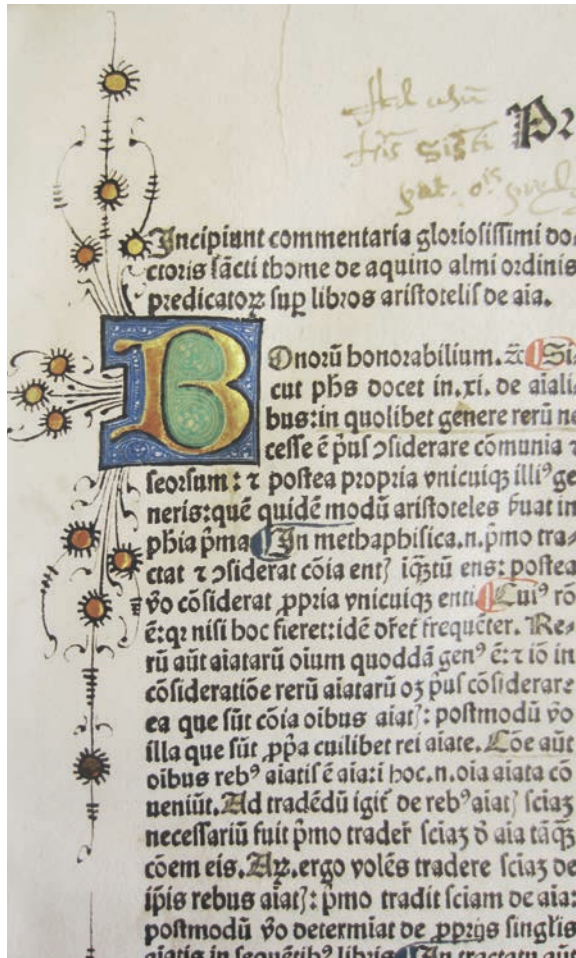 Incipiunt commentaria gloriosissimi do⸗
ctoris sācti thome de aquino almi ordinis
predicatorꝝ suꝑ libros aristotelis de aīa.
BOnorū honorabilium. ⁊c̄ Si⸗
cut ph̄s docet in.xi. de aīali
bus:in quolibet genere rerū ne
cesse ē p̄us ↄsiderare cōmunia ⁊
seorsum: ⁊ postea propria vnicuiqꝫ illiꝰ ge
neris:quē quidē modū aristoteles ẜuat in
ph̄ia p̄ma In methaphisica.n.p̄mo tra⸗
ctat ⁊ ↄsiderat cōīa entꝭ iqꝫtū ens: postea
v̄o cōsiderat ꝓpria vnicuiqꝫ enti Cuiꝰ rō
ē:qꝛ nisi hoc fieret:idē dr̄et frequēter. Re⸗
rū aūt aīatarū oīum quoddā genꝰ ē:⁊ iō in
cōsideratiōe rerū aīatarū oꝫ p̄us cōsiderare
ea que sūt cōīa oībus aīatꝭ: postmodū v̄o
illa que sūt ꝓpa cuilibet rei aīate. Cōe aūt
oībus rebꝰ aīatis ē aīa:ī hoc.n.oīa aīata cō
ueniūt. Ad tradēdū igit̄ de rebꝰ aīatꝭ sciaꝫ
necessariū fuit p̄mo trader̄ sciaꝫ d̄ aīa tāqꝫ
cōem eis. Aꝝ.ergo volēs tradere sciaꝫ de
ip̄is rebus aīatꝭ: p̄mo tradit sciam de aīa:
postmodū v̄o determīat de ꝓprijs singl̄is
aīatis in sequētibꝰ libris In tractatu aūt